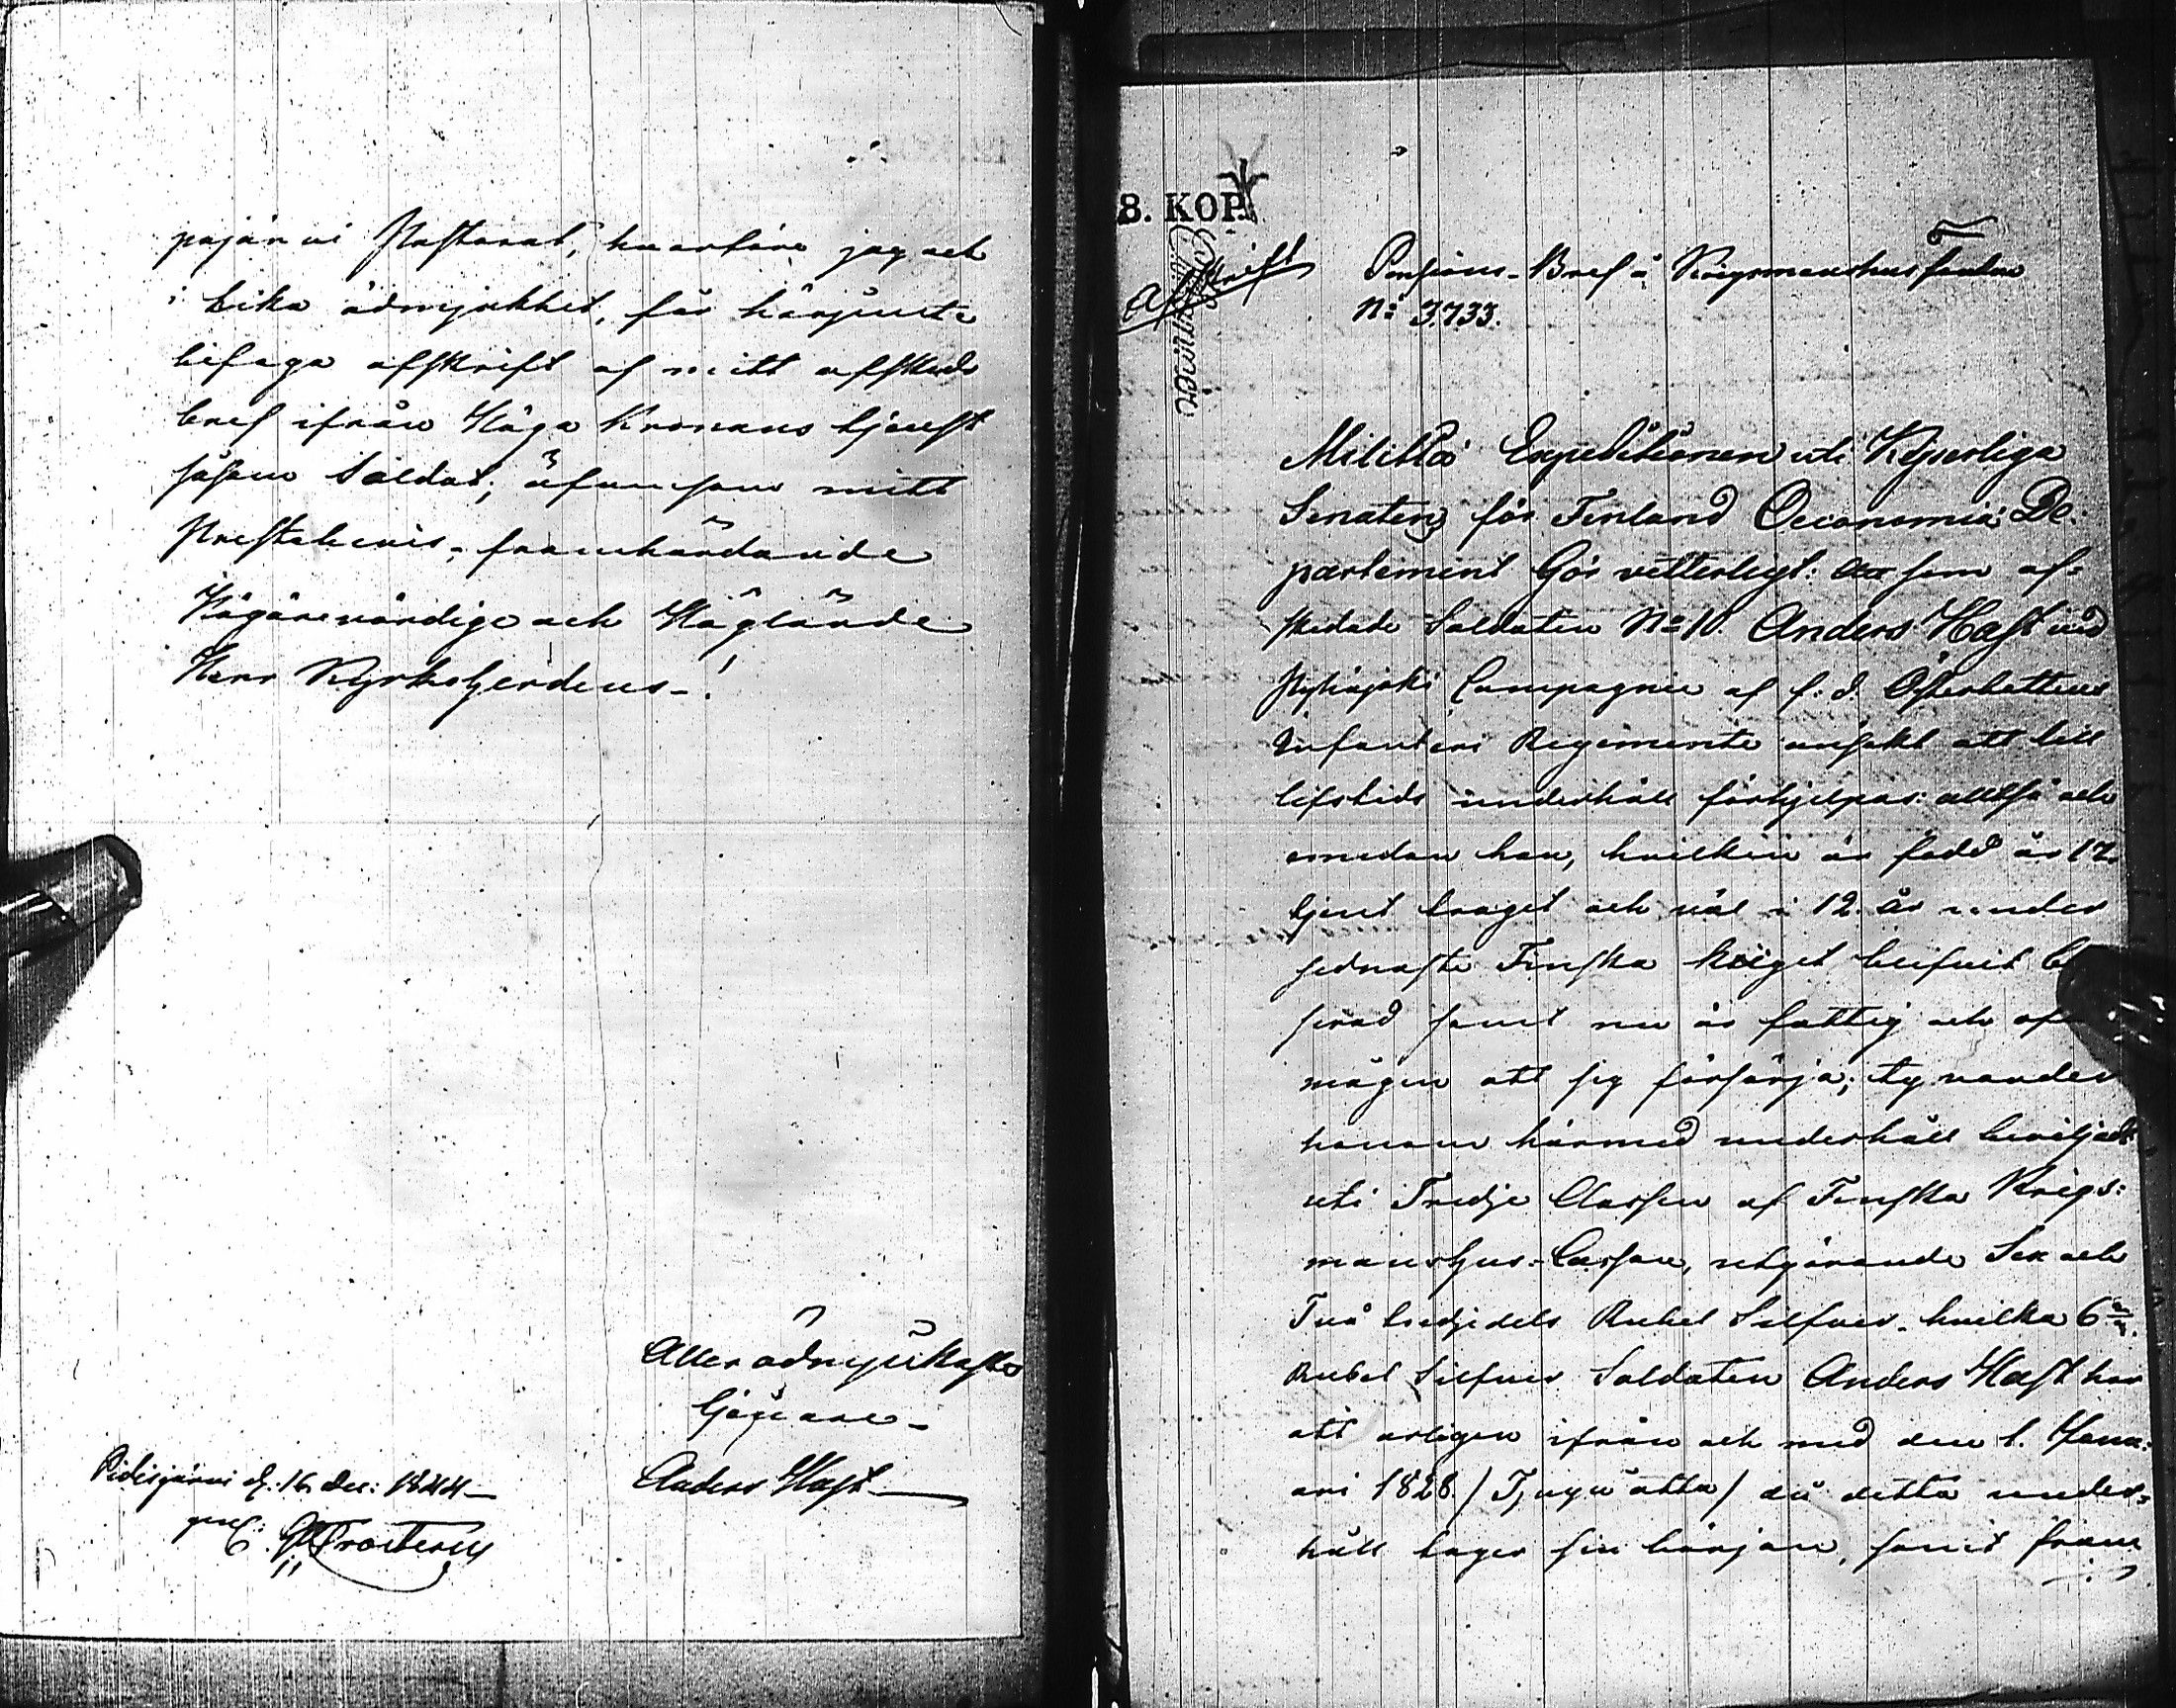 pajärvi Pastorat, hvarföre jag ock
i lika ödmjukhet, får härjemte
bifoga afskrift af mitt afskeds
bref ifrån Höga Kronans tjenst
såsom Soldat; äfvensom mitt
Prestebevis, framhärdande
Högärevördige och Höglärde
Herr Kyrkoherdens!
Aller ödmjukaste
tjenare
Anders Hast
Pidisjärvi d. 16 Dec: 1844
8. KOP.
Afskrift
Pensions-Bref å Krigsmanshus fonden
No 3,733.
Militiæ Expeditionen uti Kejserliga
Senaten för Finland Oeconomiæ De-
partement Gör vetterligt: som af-
skedade Soldaten No 10. Anders Hast vid
Pyhäjoki Compagnie af f. d. Österbottens
Infanteri Regimente ansökt att till
lifstids underhåll förhjelpas: alltså och
emedan han, hvilken är född år 17
tjent troget och väl i 12. år under
sednaste Finska kriget blifvit
serad samt nu är fattig och
mögen att sig försörja; ty varder
honom härmed underhåll beviljadt
uti Tredje Classen af Finska Krigs-
manshus-Cassan, utgörande Sex och
Två tredjedels Rubel Silfver, hvilka 6 2/3.
Rubel Silfver Soldaten Anders Hast har
att årligen ifrån och med den 1. Janu-
ari 1828. / Tjuguåtta / då detta under-
håll tager sin början, samt fram